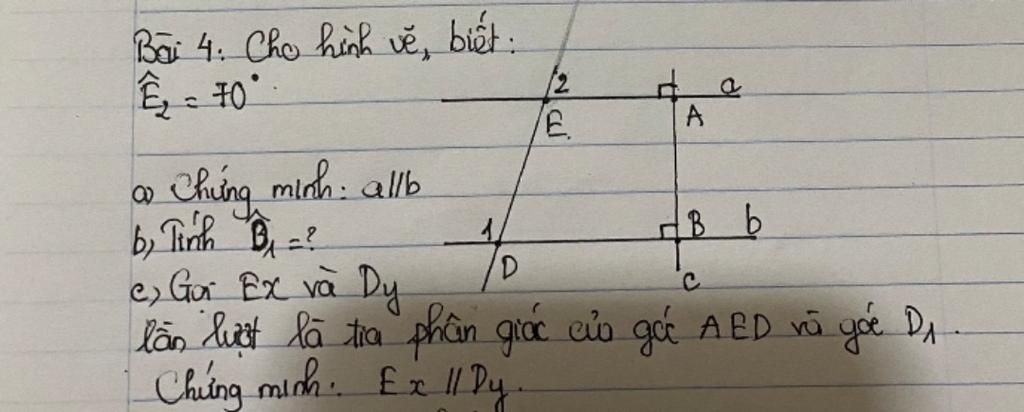 Bài 4: Cho hình vẽ, biết:
Ê₂ = 70°
2
a
E
A
a) Chứng minh: a//b
1
B
b
b, Tính D̂₁ = ?
D
c
c, Gọi Ex và Dy
lần lượt là tia phân giác của góc AED và góc D₁.
Chứng minh: Ex // Dy.